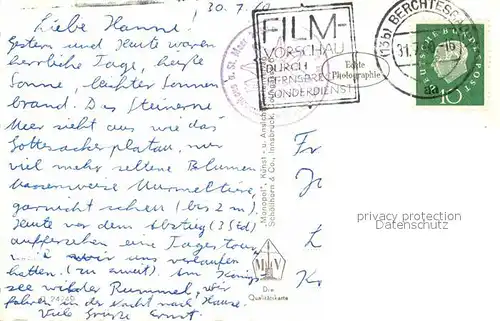 30.7.60
Liebe Hanne!
Gestern und Heute waren
herrliche Tage, heiße
Sonne, leichter Sonnen
brand. Das Steinerne
Meer sieht aus wie das
Gottesackerplatau, nur
viel mehr seltene Blumen
Massenweise Murmeltiere
garnicht scheu (bis 2 m).
Heute vor dem Abstieg (3 Std)
eine Tagestour
uns verlaufen
hatten. (zu weit). Am Königs-
see wilder Rummel, wir
fahren in der Nacht nach Hause.
Viele Grüße Ernst.
FILM-
VORSCHAU
DURCH
FERNSPRECH
SONDERDIENST
Echte
Photographie
(13b) BERCHTESGA
31.7.60-16
aa
DEUTSCHE BUNDESPOST
10
"Monopol", Kunst- u. Ansichts
Schöllhorn & Co., Innsbruck,
Die
Qualitätskarte
24749
Fr
L
privacy protection
Datenschutz